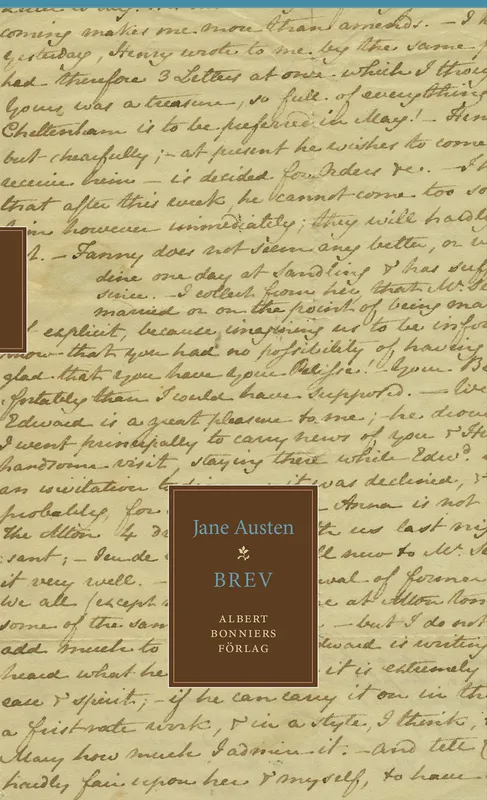 coming makes me more than amends. — I
yesterday, Henry wrote to me by the same
had therefore 3 Letters at once which I thou
Yours was a treasure, so full of everything
Cheltenham is to be preferred in May! — Hen
but chearfully; — at present he wishes to come
receive him — is decided for Orders &c. — I
that after this week he cannot come too so
him however immediately; they will hardly
t. — Fanny does not seem any better, or
dine one day at Sandling & has suff
since. — I collect from her, that Mr. S
married or on the point of being ma
explicit, because imagining us to be infor
know that you had no possibility of having
glad that you have your Pelisse! Your
fortably than I could have supposed. — We
Edward is a great pleasure to me; — he drove
I went principally to carry news of you & H
handsome visit, staying there while Edwd.
an invitation to it was declined, &
probably, for — Anna is not
the Alton 4 th us last nig
sant; — ll new to Mr.
it very well. — val of former
We all (except e at Alton
some of the sam — but I do not
add much to dward is writing
heard what he it is extremely
ease & spirit; — if he can carry it on in th
a first-rate work, & in a style, I think,
Mary how much I admire it. — And tell
hardly fair upon her & myself, to have
Jane Austen
BREV
ALBERT
BONNIERS
FÖRLAG